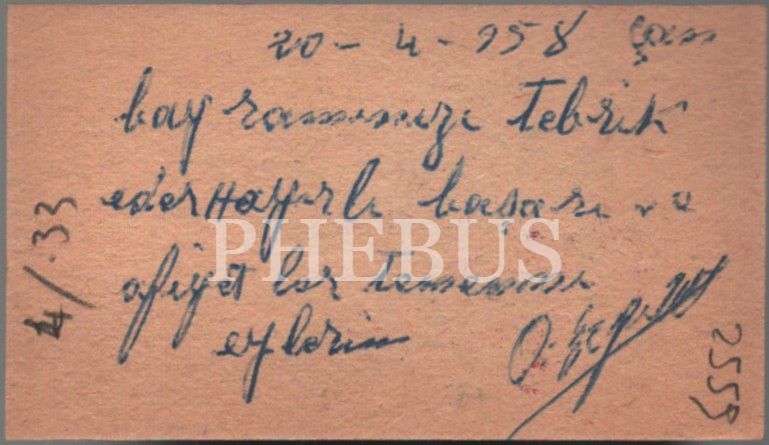 20 - 4 - 958 Çan
bayramınızı tebrik
eder Hayırlı başarı ve
afiyet ler temenni
eylerim
PHEBUS
4/.33
2559